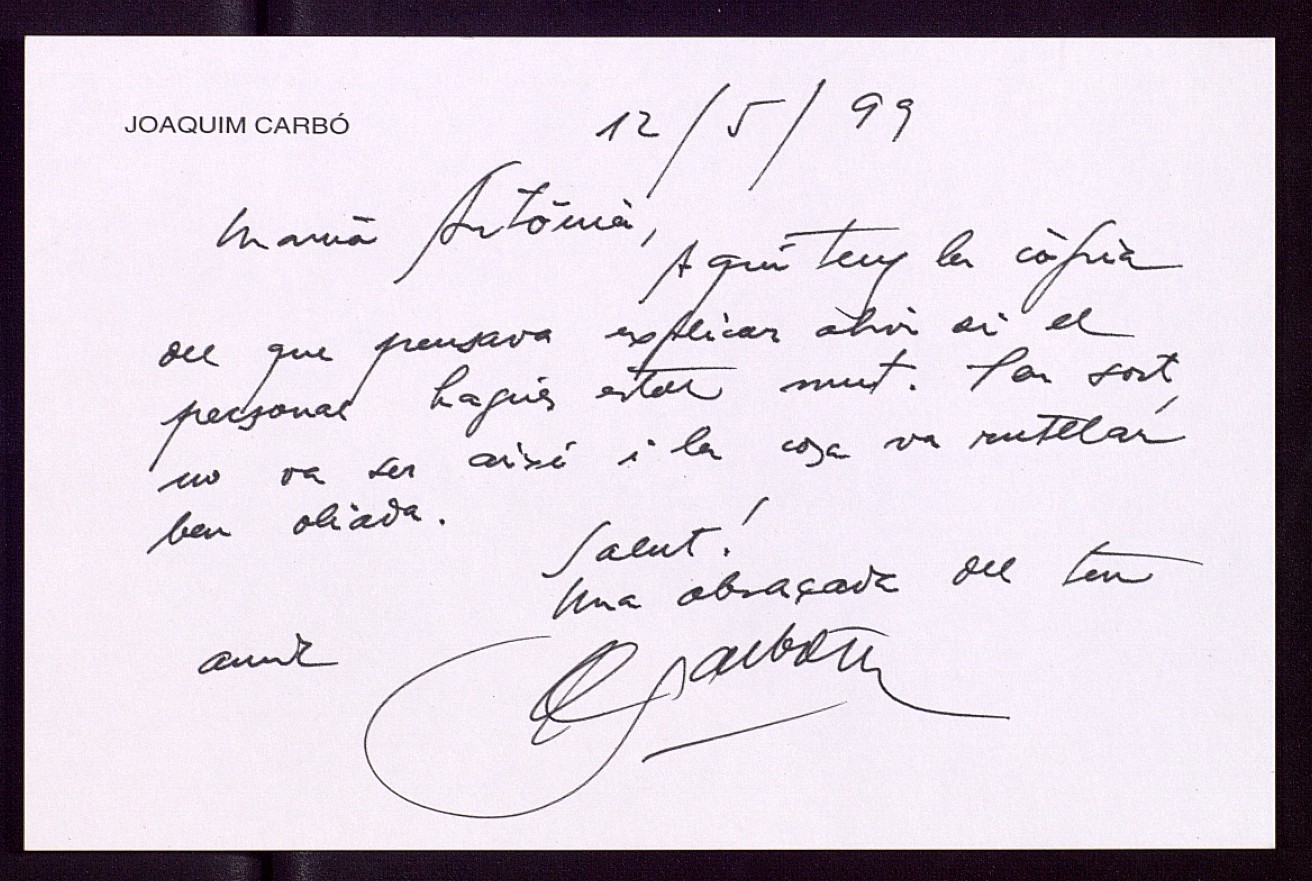 JOAQUIM CARBÓ
12/5/99
Maria Antònia,
Aquí tens la còpia
del que pensava explicar ahir si el
personal hagués estat mut. Per sort,
no va ser així i la cosa va rutllar
ben oliada.
Salut!
Una abraçada del teu
amic